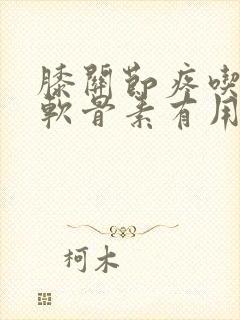 膝關節疼喫
軟骨素有用
柯木